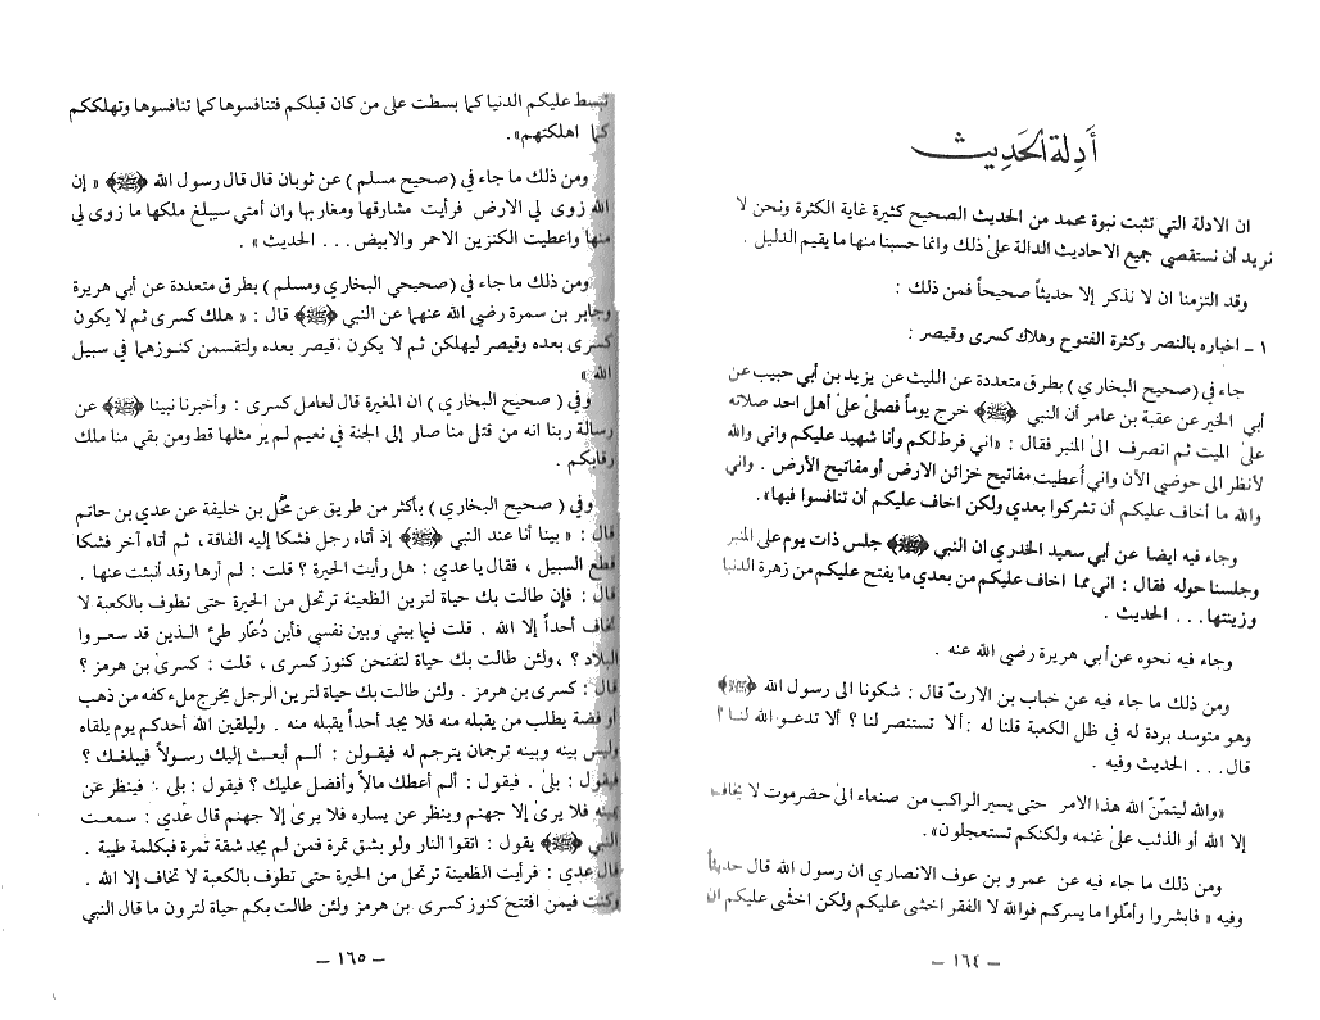 أَدِلة الحَدِيث
ان الادلة التي تثبت نبوة محمد من الحديث الصحيح كثيرة غاية الكثرة ونحن لا
نريد أن نستقصي جميع الاحاديث الدالة علىٰ ذلك وانما حسبنا منها ما يقيم الدليل .
وقد التزمنا ان لا نذكر إلا حديثاً صحيحاً فمن ذلك :
١ – اخباره بالنصر وكثرة الفتوح وهلاك كسرى وقيصر :
جاء في ( صحيح البخاري ) بطرق متعددة عن الليث عن يزيد بن أبي حبيب عن
أبي الخير عن عقبة بن عامر أن النبي ﴿ﷺ﴾ خرج يوماً فصلىٰ علىٰ أهل احد صلاته
علىٰ الميت ثم انصرف الىٰ المنبر فقال : «اني فرط لكم وأنا شهيد عليكم واني والله
لأنظر الى حوضي الآن واني أُعطيت مفاتيح خزائن الارض أو مفاتيح الأرض . واني
والله ما أخاف عليكم أن تشركوا بعدي ولكن اخاف عليكم أن تنافسوا فيها».
وجاء فيه ايضا عن أبي سعيد الخدري ان النبي ﴿ﷺ﴾ جلس ذات يوم على المنبر
وجلسنا حوله فقال : اني مما اخاف عليكم من بعدي ما يفتح عليكم من زهرة الدنيا
وزينتها . . . الحديث .
وجاء فيه نحوه عن أبي هريرة رضي الله عنه .
ومن ذلك ما جاء فيه عن خباب بن الارتّ قال : شكونا الى رسول الله ﴿ﷺ﴾
وهو متوسد بردة له في ظل الكعبة قلنا له : ألا تستنصر لنا ؟ ألا تدعو الله لنا ؟
قال . . . الحديث وفيه .
«والله ليتمّنّ الله هذا الامر حتى يسير الراكب من صنعاء الىٰ حضرموت لا يخاف
إلا الله أو الذئب علىٰ غنمه ولكنكم تستعجلون».
ومن ذلك ما جاء فيه عن عمرو بن عوف الانصاري ان رسول الله قال حديثاً
وفيه « فابشروا وأمّلوا ما يسركم فوالله لا الفقر اخشى عليكم ولكن اخشى عليكم ان
– ١٦٤ –
تبسط عليكم الدنيا كما بسطت على من كان قبلكم فتنافسوها كما تنافسوها وتهلككم
كما اهلكتهم».
ومن ذلك ما جاء في ( صحيح مسلم ) عن ثوبان قال قال رسول الله ﴿ﷺ﴾ « إن
الله زوى لي الارض فرأيت مشارقها ومغاربها وان أمتي سيبلغ ملكها ما زوى لي
منها واعطيت الكنزين الاحمر والابيض . . . الحديث » .
ومن ذلك ما جاء في ( صحيحي البخاري ومسلم ) بطرق متعددة عن أبي هريرة
وجابر بن سمرة رضي الله عنهما عن النبي ﴿ﷺ﴾ قال : « هلك كسرى ثم لا يكون
كسرى بعده وقيصر ليهلكن ثم لا يكون قيصر بعده ولتقسمن كنوزهما في سبيل
الله »
وفي ( صحيح البخاري ) ان المغيرة قال لعامل كسرى : وأخبرنا نبينا ﴿ﷺ﴾ عن
رسالة ربنا انه من قتلى منا صار إلى الجنة في نعيم لم يرَ مثلها قط ومن بقي منا ملك
رقابكم .
وفي ( صحيح البخاري ) بأكثر من طريق عن محُّل بن خليفة عن عدي بن حاتم
قال : « بينا أنا عند النبي ﴿ﷺ﴾ إذ أتاه رجل فشكا إليه الفاقة، ثم أتاه آخر فشكا
قطع السبيل ، فقال يا عدي : هل رأيت الحيرة ؟ قلت : لم أرها وقد أنبئت عنها .
قال : فإن طالت بك حياة لترين الظعينة ترتحل من الحيرة حتى تطوف بالكعبة لا
تخاف أحداً إلا الله . قلت فيما بيني وبين نفسي فأين دُعّار طيّ الذين قد سعروا
البلاد ؟ ، ولئن طالت بك حياة لتفتحن كنوز كسرى ، قلت : كسرىٰ بن هرمز ؟
قال : كسرى بن هرمز . ولئن طالت بك حياة لترين الرجل يخرج ملء كفه من ذهب
أو فضة يطلب من يقبله منه فلا يجد أحداً يقبله منه . وليلقين الله أحدكم يوم يلقاه
وليس بينه وبينه ترجمان يترجم له فيقولن : ألم أبعث إليك رسولاً فيبلغك ؟
فيقول : بلىٰ . فيقول : ألم أعطك مالاً وأفضل عليك ؟ فيقول : بلى . فينظر عن
يمينه فلا يرىٰ إلا جهنم وينظر عن يساره فلا يرىٰ إلا جهنم قال عُدي : سمعت
النبي ﴿ﷺ﴾ يقول : اتقوا النار ولو بشق تمرة فمن لم يجد شقة تمرة فبكلمة طيبة .
قال عدي : فرأيت الظعينة ترتحل من الحيرة حتى تطوف بالكعبة لا تخاف إلا الله .
وكنت فيمن افتتح كنوز كسرى بن هرمز ولئن طالت بكم حياة لترون ما قال النبي
– ١٦٥ –